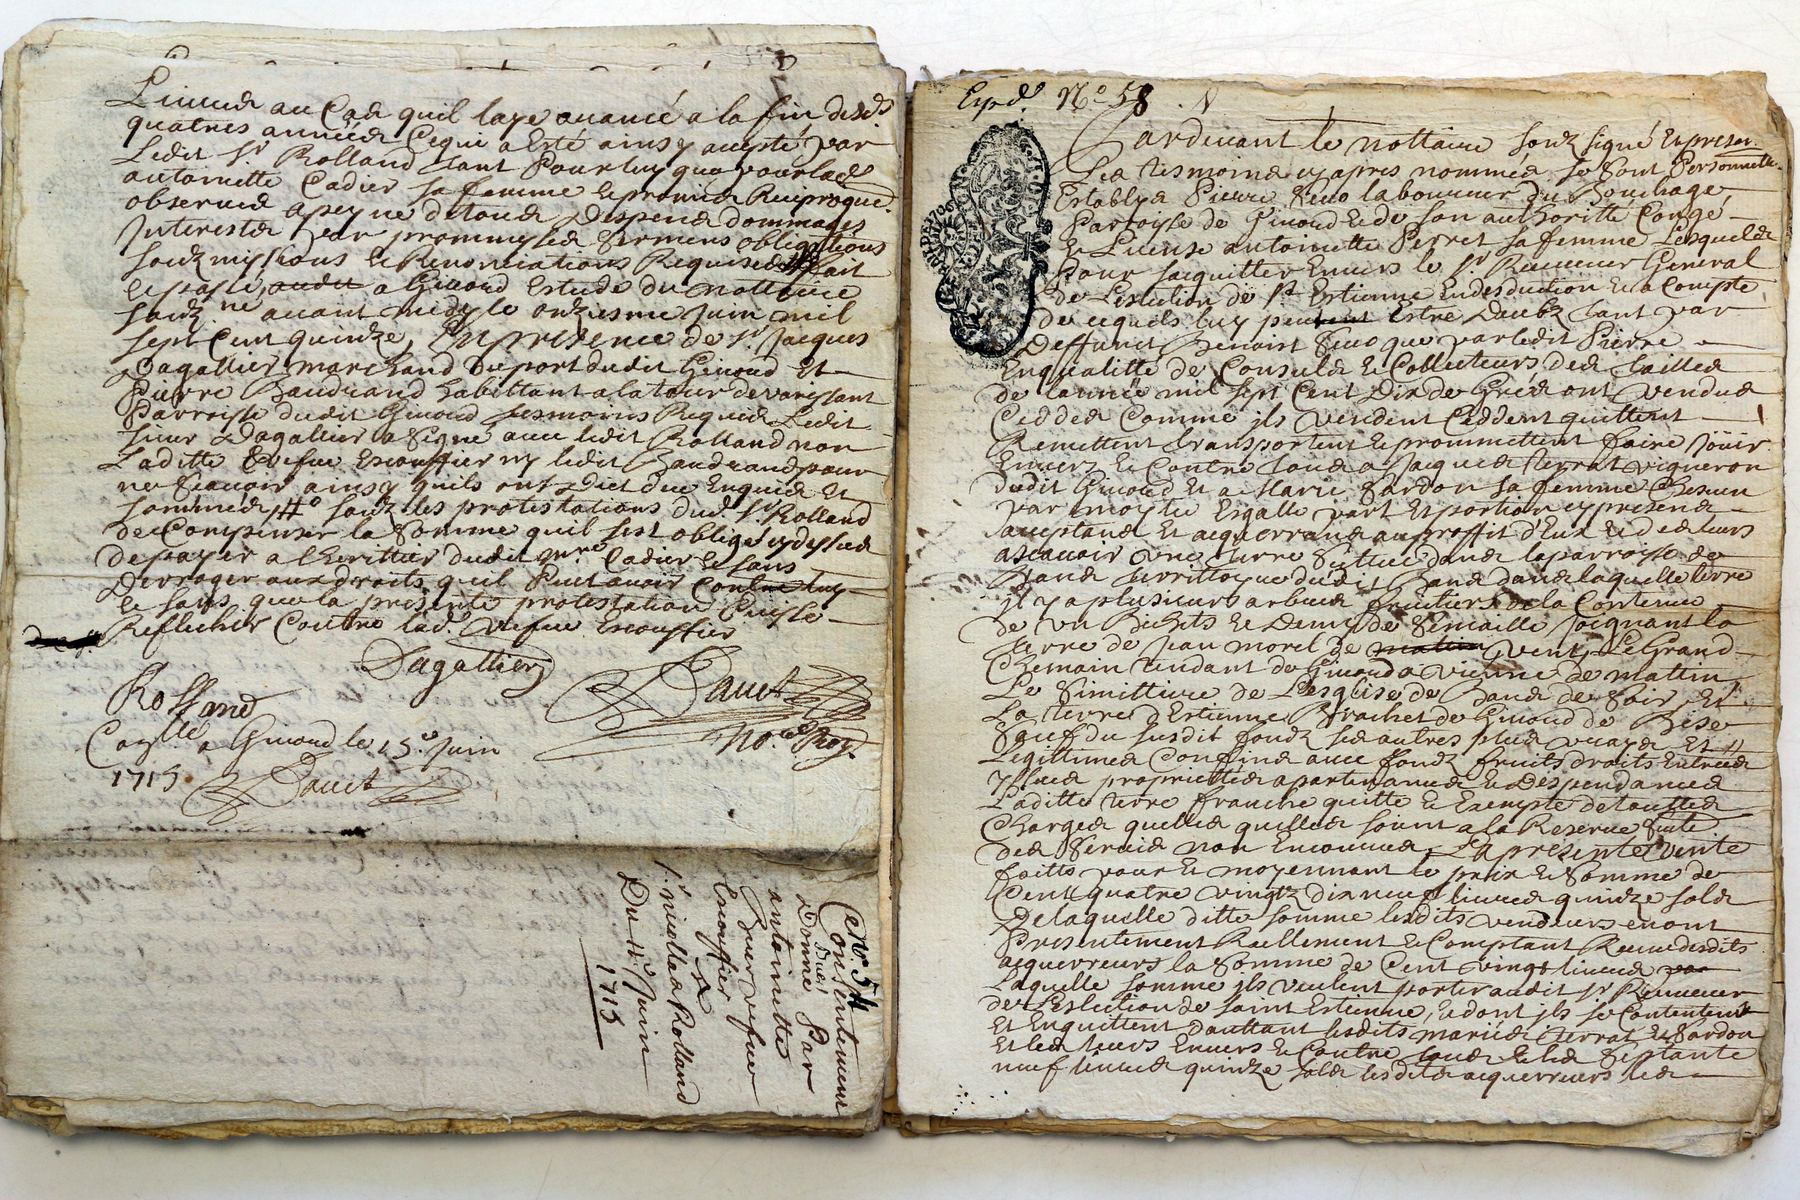 au Cas quil laye avancé a la fin desd
quatres années Cequi a Esté ainsy accepté par
Ledit Sr Rolland tant Pour luy que pour lad
antoinette Cadier sa femme
observer a peyne de tous Despens dommages
Interests par
soubzmissions & Renonciations Requises fait
a Givord Estude du nottaire
soubz né avant midy le onziesme Juin mil
sept Cent quinze, En presence de Sr Jacques
Dagallier marchand du port dudit Givord Et
Pierre Baudrand habittant a la tour de varissant
Parroisse dudit Givord tesmoins Requis Ledit
sieur Dagallier a Signé avec ledit Rolland non
Laditte vefue Escouffier ny ledit Baudrand pour
ne scavoir ainsy quils ont Dict de ce Enquis Et
sommés soubz les protestations dud. Sr Rolland
de Compenser la Somme quil sest obligé cydessus
de payer a lheritier dudit mre Cadier & sans
Derroger aux droits quil Peut avoir Contre luy
& sans que la presente protestation Puisse
Reflechir Contre lad. vefue Escouffier
Dagallier
Rolland
Dauet
No.re Roy.
a Givord le 15e Juin
1715
Dauet
No 54
Consentement
Donné Par
antoinette
vefue
Escouffier
a
Sr Rolland
Du 11e Juin
1715
Expd. No 58
Pardevant le nottaire soubz signé & presen
Les tesmoins cyapres nommés se sont Personnelle
Establys Pierre laboureur du
Parroisse de Givord & de son authoritté Congé
& License antoinette Perret sa femme Lesquels
Pour sacquitter Envers le Sr Receveur General
de Leslection de St Estienne En desduction & a Compte
de cequils luy peuvent Estre Daubz tant par
Deffunct Benoist que par ledit Pierre
En qualitté de Consuls & Collecteurs des tailles
de lannée mil sept Cent Dix de Gré ont vendus
Ceddés Comme ils vendent Ceddent quittent
Remettent transportent & prommettent faire Jouir
Envers & Contre tous a Jacques terrat vigneron
dudit Givord Et a Marie Sardon sa femme Chescun
par moytié Esgalle part Et portion cy presens
acceptans & acquerrans au proffit d'Eux & des leurs
ascavoir une terre Scittuée dans la parroisse de
Bans territtoyre dudit Bans dans laquelle terre
il y a plusieurs arbres fruitiers de la Contenue
de un Bichets & Demy de Semaille Joignant la
terre de Jean morel de vent, Le Grand
Chemain tendant de Givord a vienne de mattin
Le Simittiere de Lesglise de Bans de Soir Et
La terre d'Estienne Brachet de Givord de Bise
Sauf du susdit fondz ses autres plus vrays Et
Legittimes Confins avec fondz fruits droits Entrées
yssues propriettés apartenances & Despendances
Laditte terre franche quitte & Exempte de touttes
Charges quelles quelles soient a la Reserve
des Servis non Encourues, La presente vente
faitte pour & moyennant le prix & Somme de
Cent quatre vingtz dix neuf livres quinze solz
De laquelle ditte somme lesdits vendeurs en ont
Presentement Raellement & Comptant Receu desdits
acquerreurs la Somme de Cent vingt livres
Laquelle somme ils veulent porter audit Sr Receveur
de Leslection de saint Estienne, & dont ils se Contentent
Et Enquittent Dauttant lesdits mariés terrat & Sardon
Et les leurs Envers & Contre tous & les Septante
neuf livres quinze solz lesdits acquerreurs les